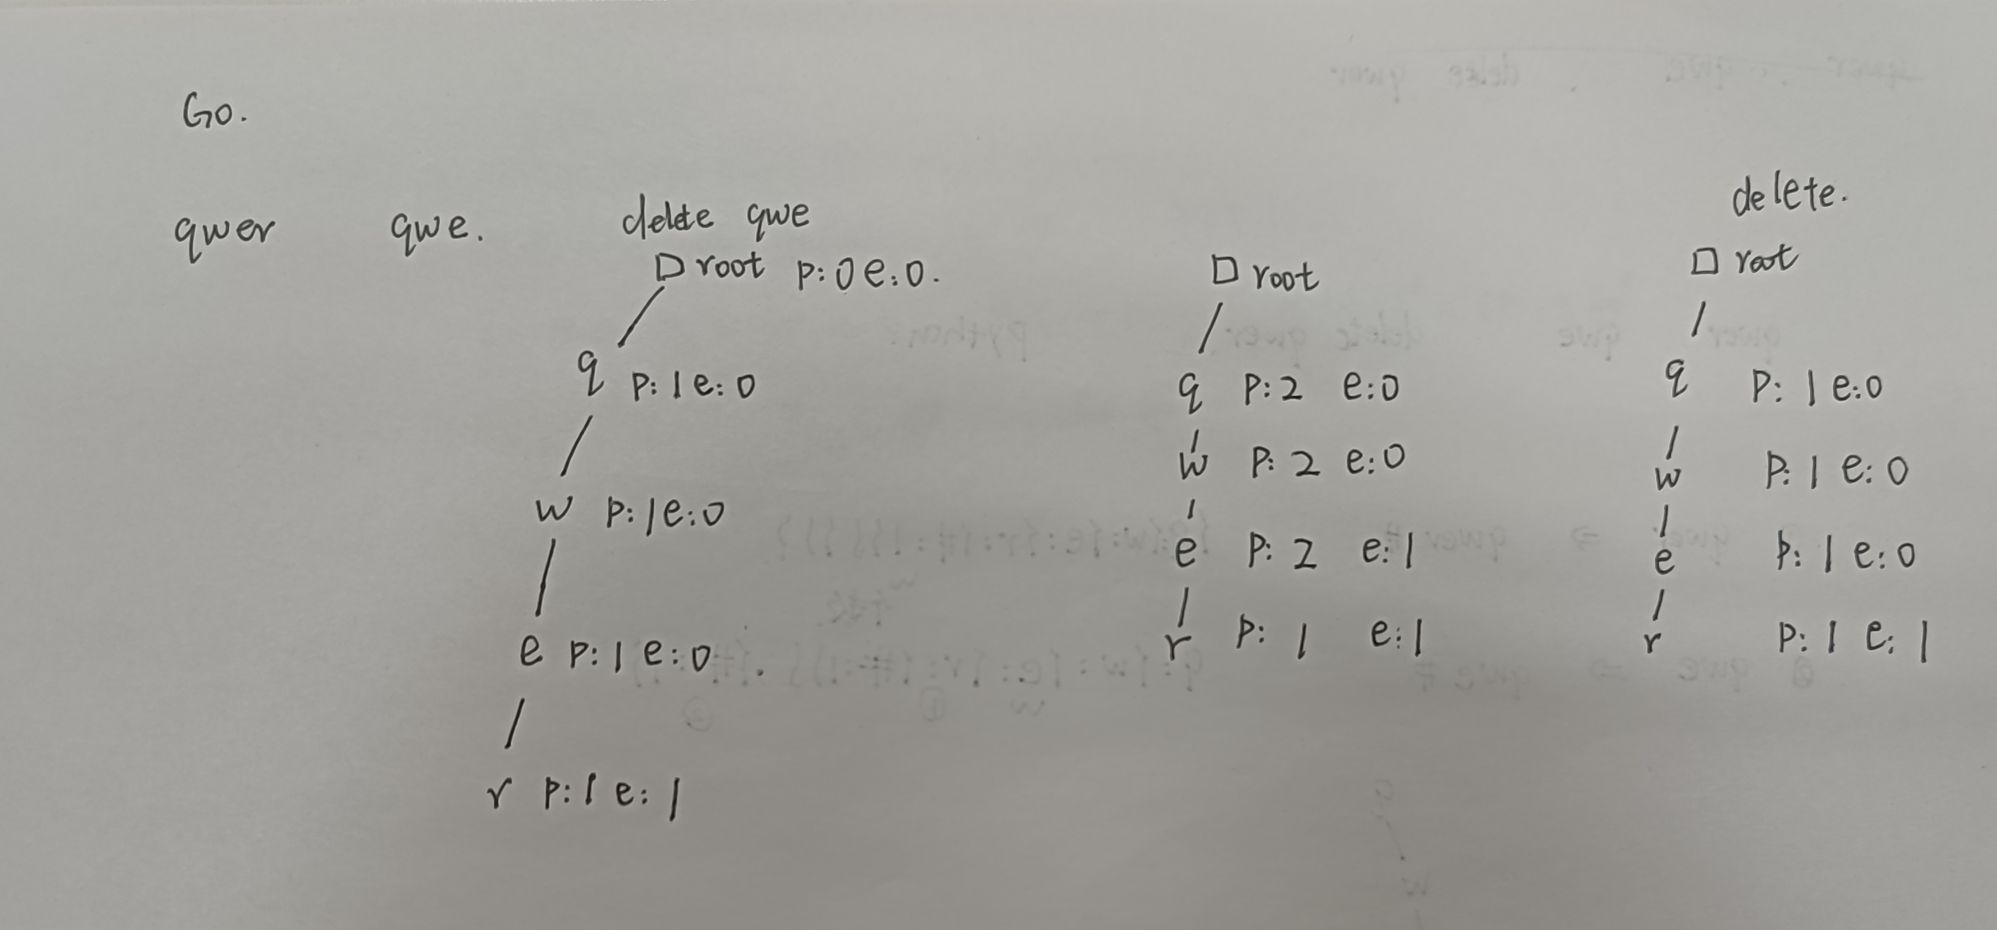 Go.
qwer qwe. delete qwe
root p:0 e:0.
q p:1 e:0
w p:1 e:0
e p:1 e:0.
r p:1 e:1
root
q p:2 e:0
w p:2 e:0
e p:2 e:1
r p:1 e:1
delete.
root
q p:1 e:0
w p:1 e:0
e p:1 e:0
r p:1 e:1